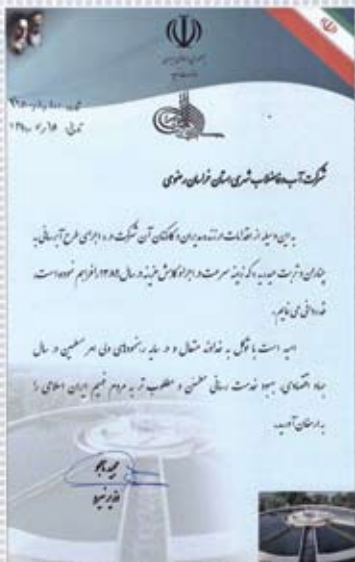 شرکت آب و فاضلاب شهری استان خراسان رضوی
به این وسیله از اقدامات ارزنده مدیران و کارکنان آن شرکت در اجرای طرح آبرسانی به
چناران و تربت حیدریه که زمینه سرعت در اجرا و کاهش هزینه در سال ۱۳۸۹ را فراهم نموده است،
قدردانی می نمایم.
امید است با توکل به خداوند متعال و در سایه رهنمودهای ولی امر مسلمین در سال
جهاد اقتصادی، بهبود خدمت رسانی مطمئن و مطلوب تر به مردم فهیم ایران اسلامی را
به ارمغان آورید.
مجید نامجو
وزیر نیرو